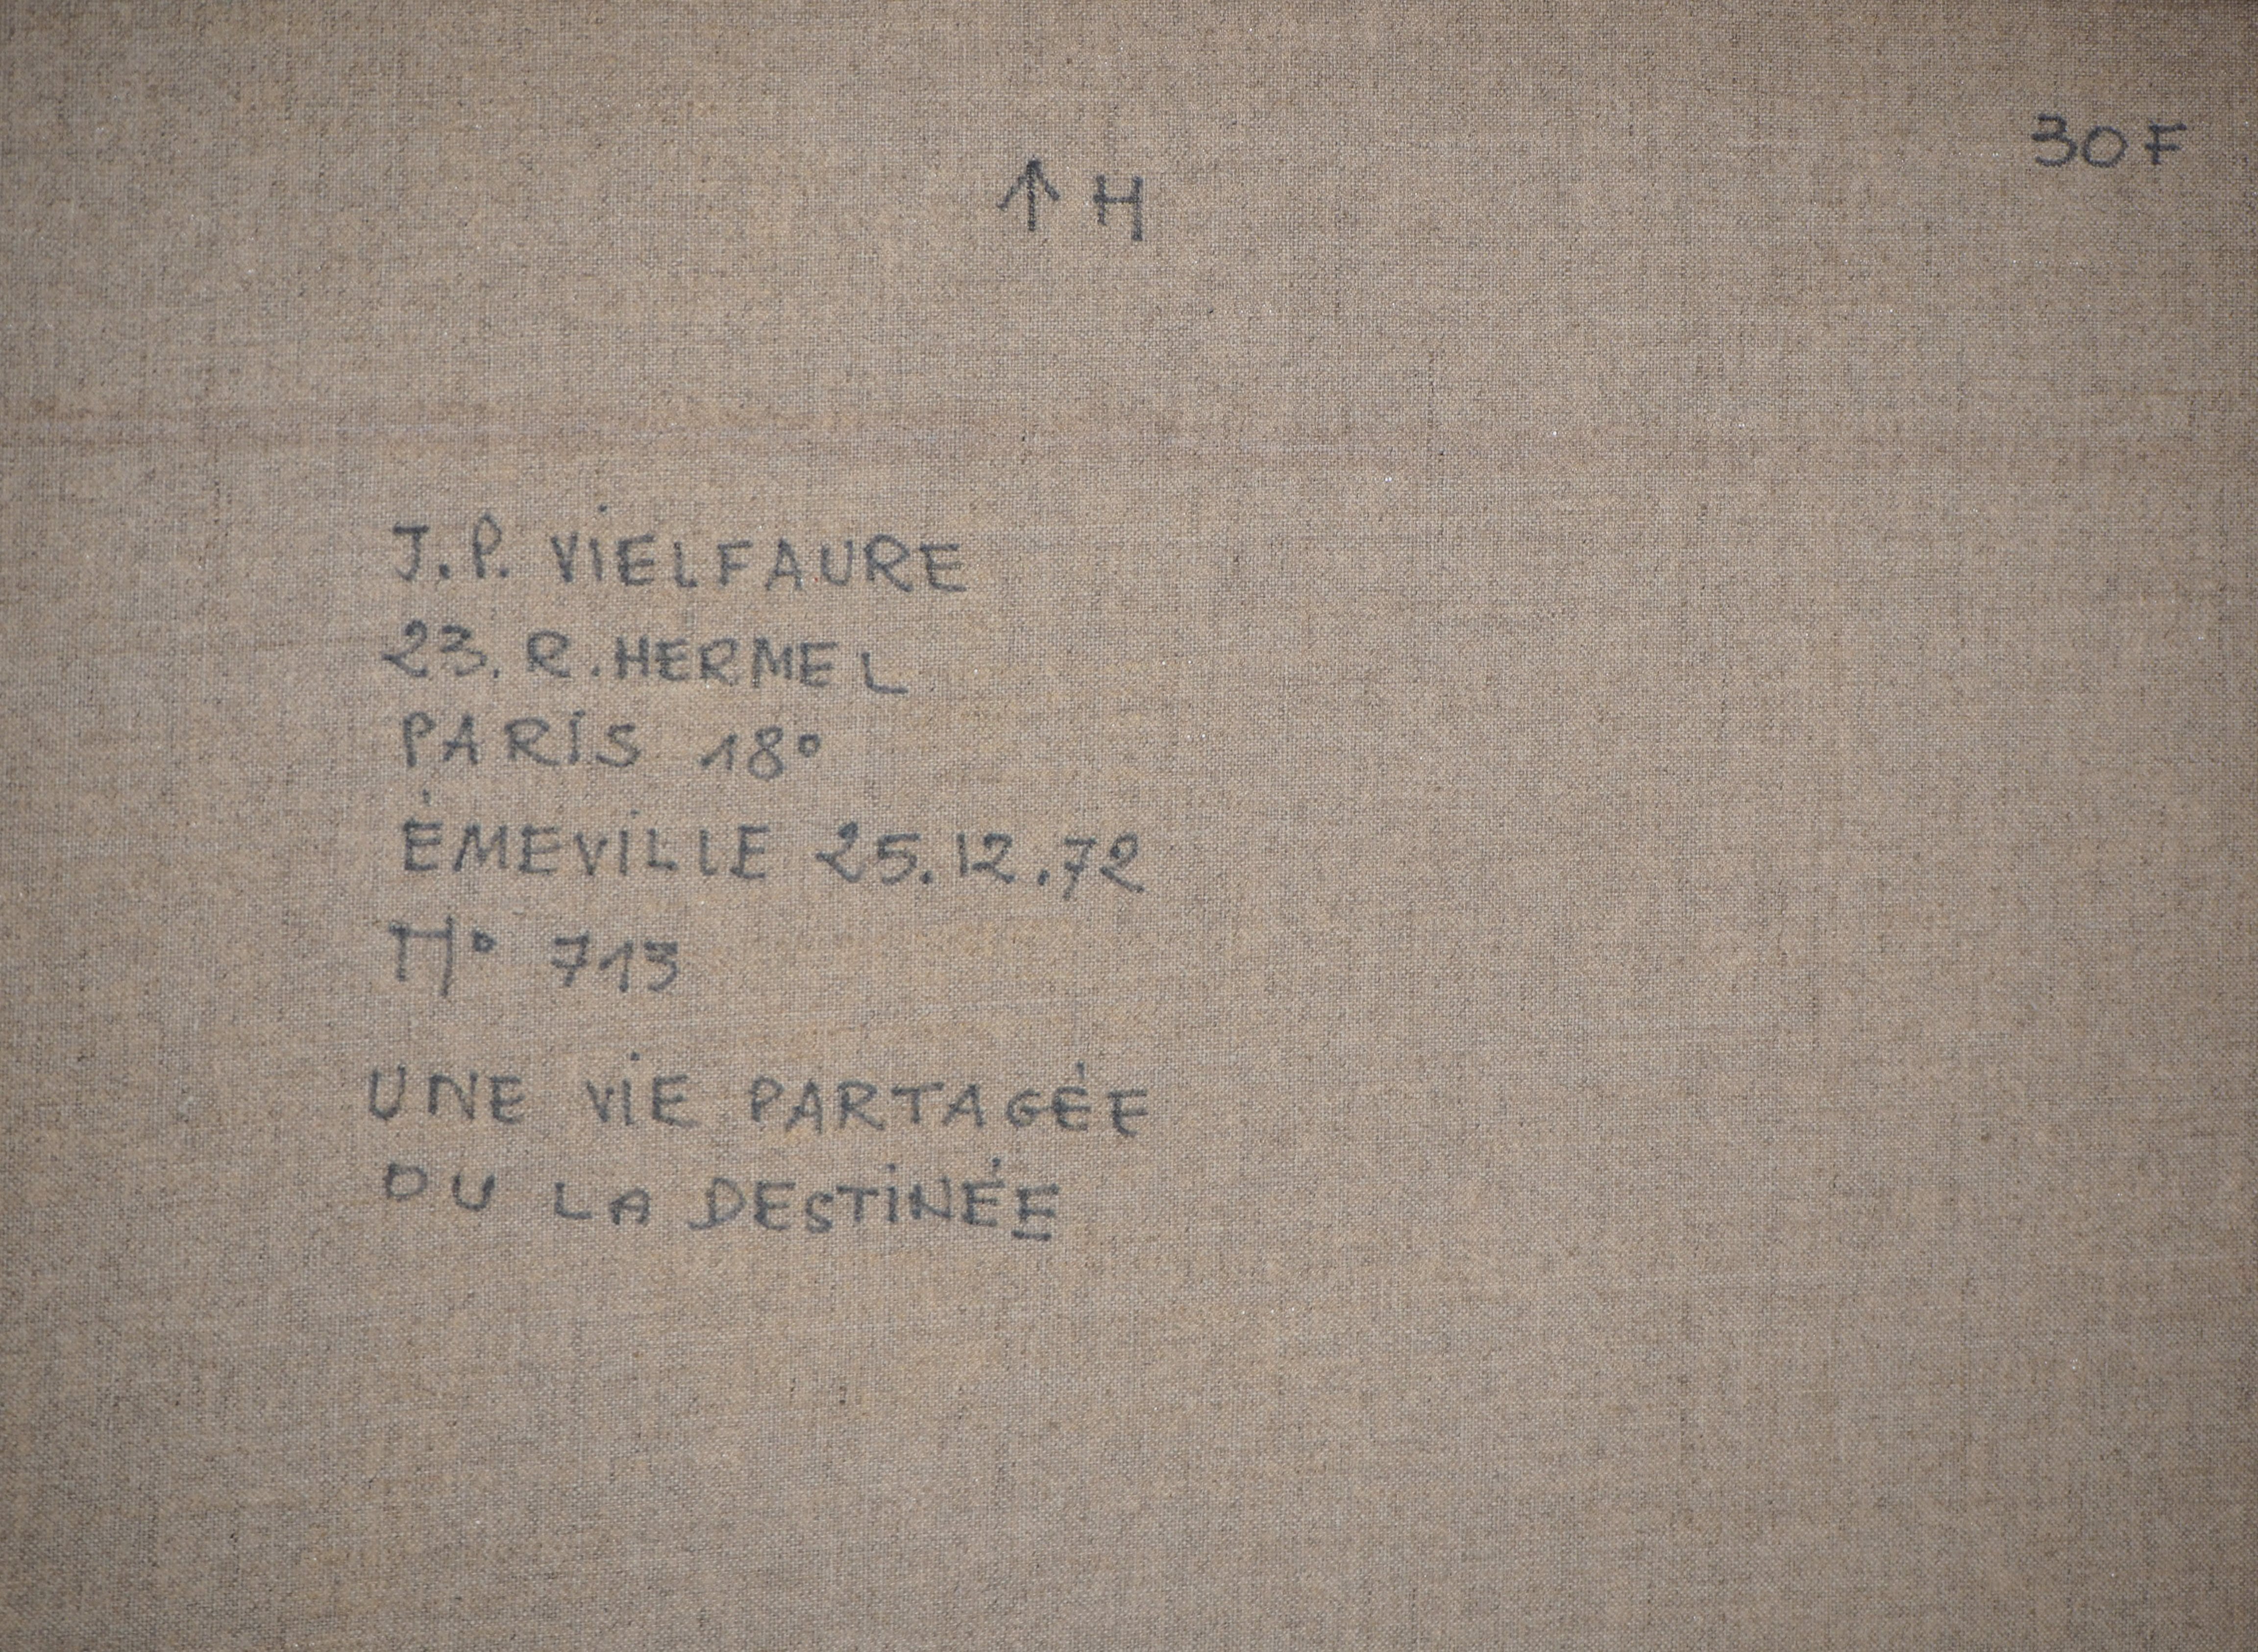 30F
↑ H
J.P. VIELFAURE
23. R. HERMEL
PARIS 18°
ÉMEVILLE 25.12.72
N° 713
UNE VIE PARTAGÉE
OU LA DESTINÉE